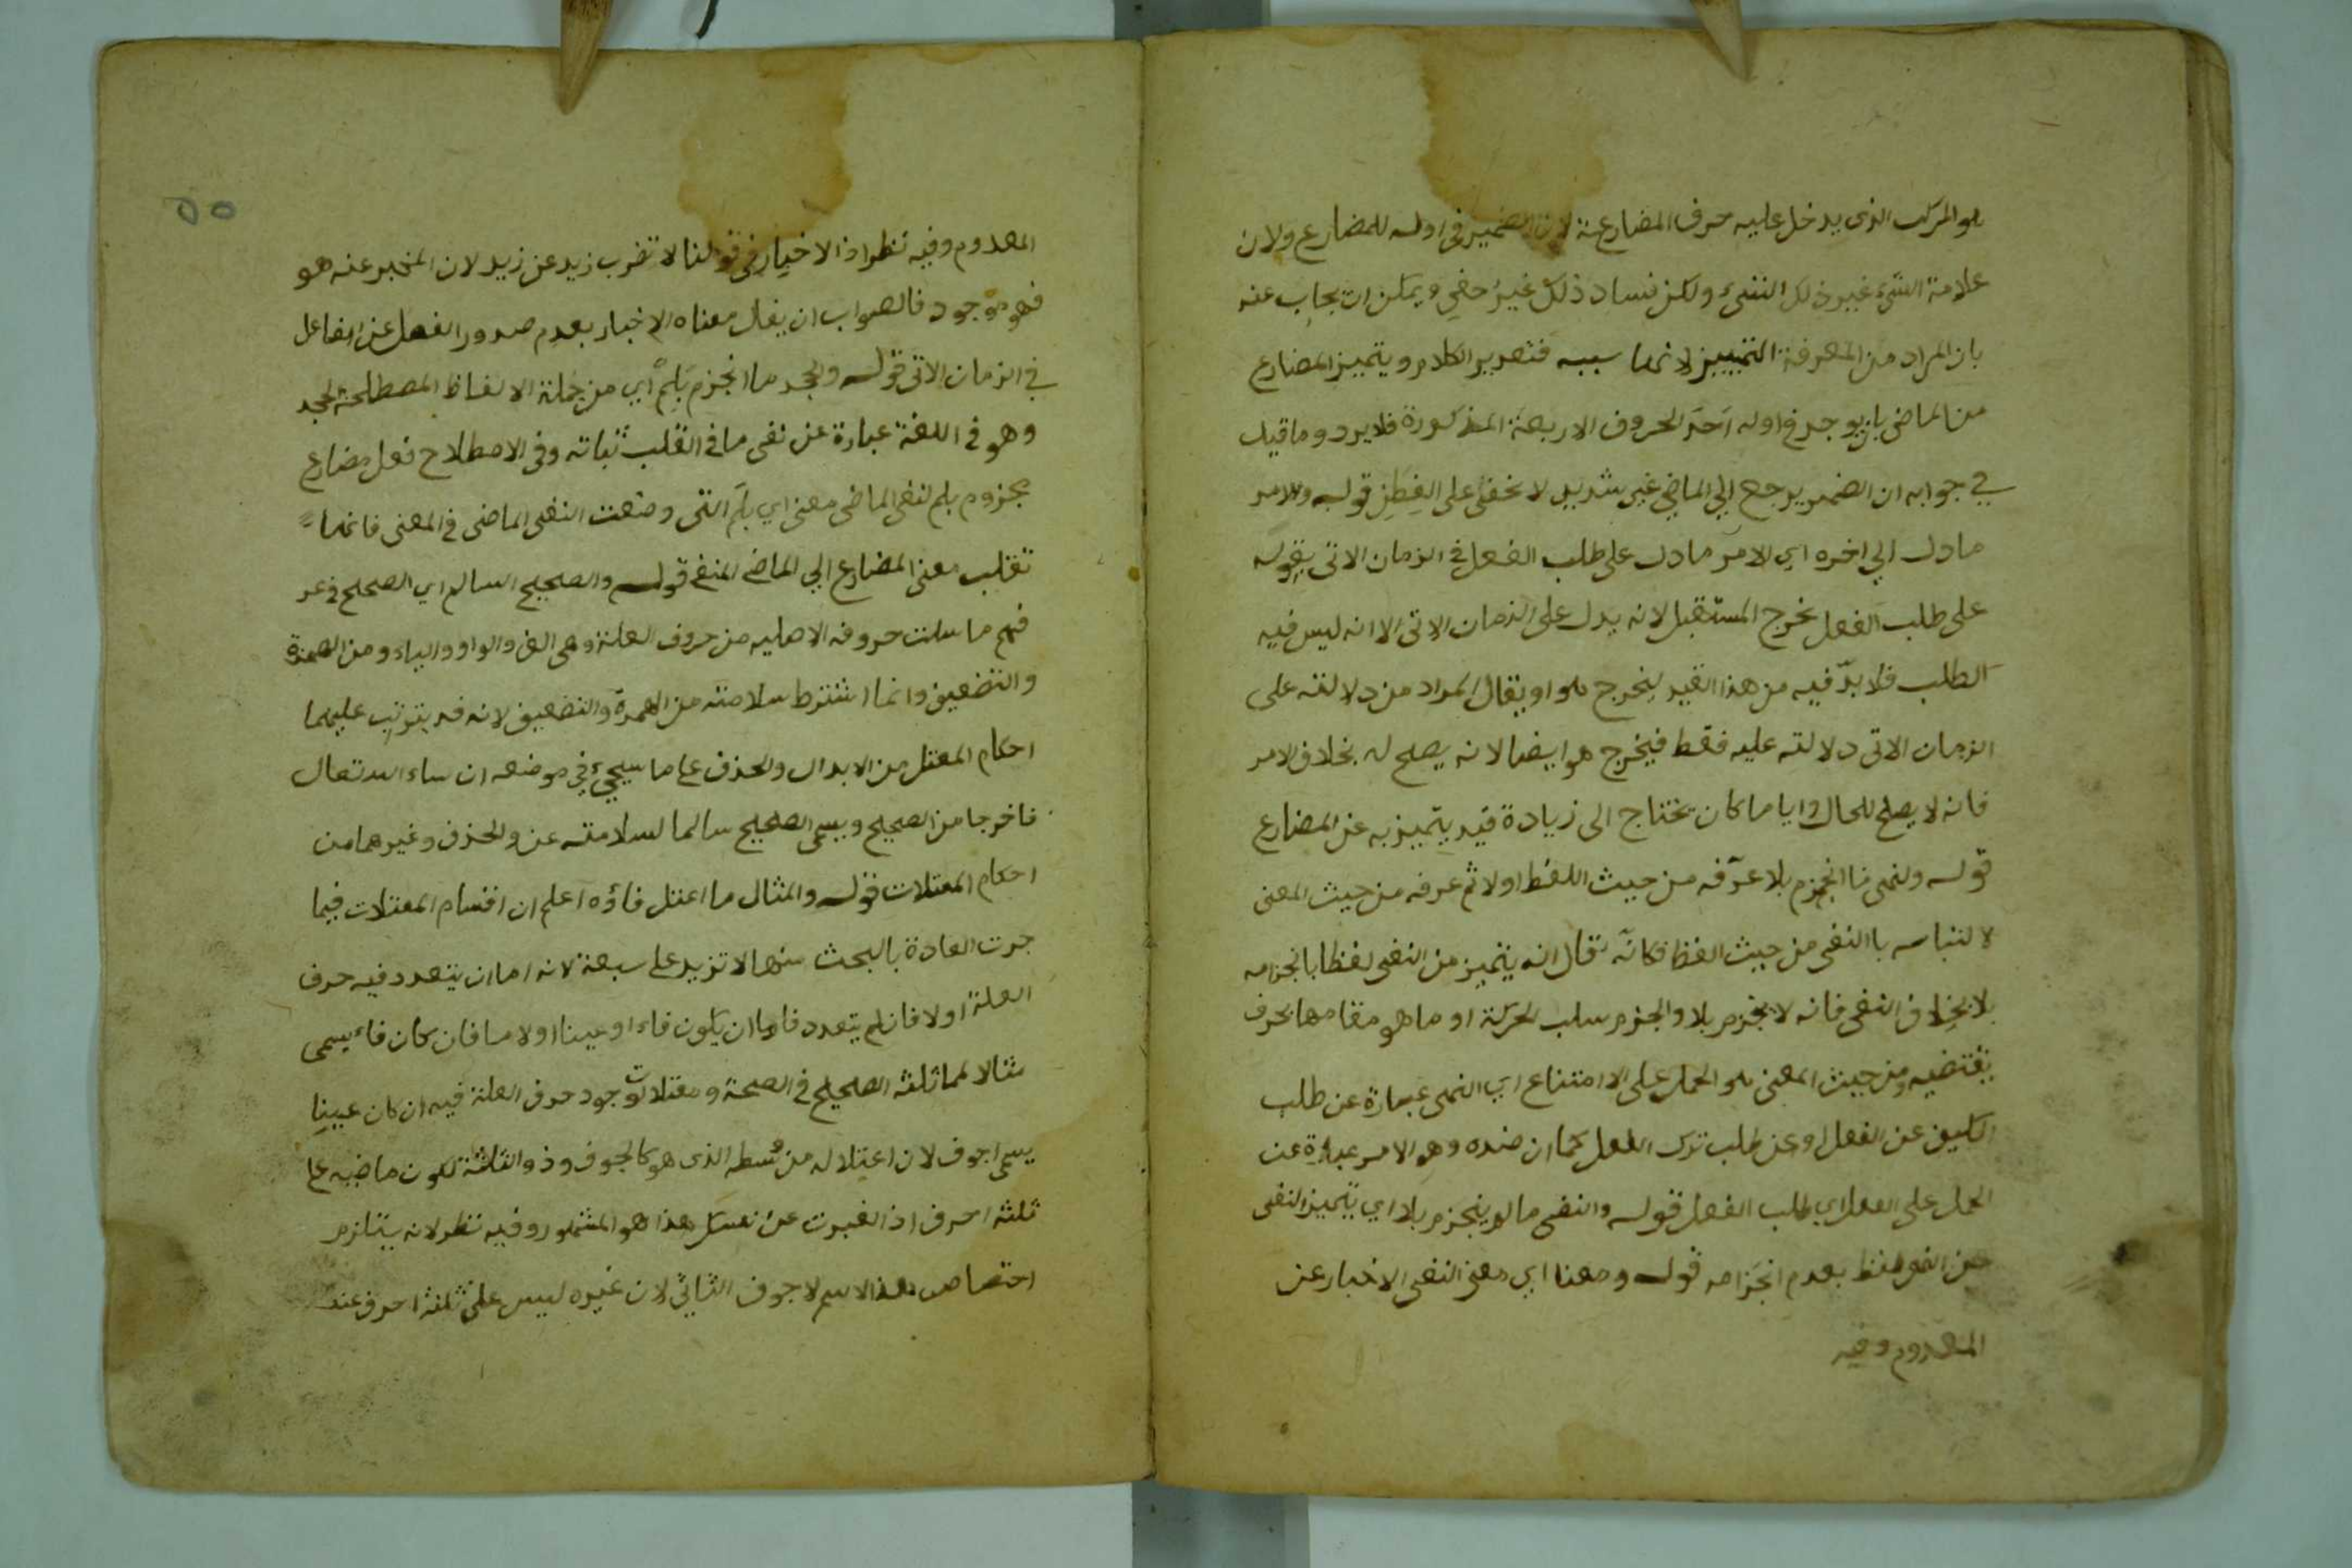 هو المركب الذى يدخل عليه حرف المضارعة لان الضمير فى اوله للمضارع ولان
علامة الشىء غير ذلك الشىء ولكن فساد ذلك غير خفى ويمكن ان يجاب عنه
بان المراد من المعرفة التمييز لانها سببه فتقدير الكلام ويتميز المضارع
من الماضى بان يوجد فى اوله احد الحروف الاربعة المذكورة فلا يرد وما قيل
في جوابه ان الضمير يرجع الي الماضي غير شديد لا يخفى على الفطن قوله والامر
ما دل الي اخره اي الامر ما دل على طلب الفعل في الزمان الاتى بقوله
على طلب الفعل يخرج المستقبل لانه يدل على الزمان الاتى الا انه ليس فيه
الطلب فلا بدّ فيه من هذا القيد ليخرج هو او يقال المراد من دلالته على
الزمان الاتى دلالته عليه فقط فيخرج هو ايضا لانه يصلح له بخلاف الامر
فانه لا يصلح للحال وايا ما كان يحتاج الى زيادة قيد يتميز به عن المضارع
قوله والنهى ما انجزم بلا عرّفه من حيث اللفظ اولا ثم عرفه من حيث المعنى
لالتباسه باالنفى من حيث الفظ فكانه قال انه يتميز من النفى لفظا بانجزامه
بلا بخلاف النفى فانه لا ينجزم بلا والجزم سلب الحركة او ما هو مقامها بحرف
يقتضيه ومن حيث المعنى هو الحمل على الامتناع اي النهى عبارة عن طلب
الكيف عن الفعل او عن طلب ترك الفعل كما ان ضده وهو الامر عبارة عن
الحمل على الفعل اي طلب الفعل قوله والنفى ما لم ينجزم بلا اي يتميز النفى
عن النهى لفظ بعدم انجزامه قوله ومعنا اي معنى النفى الاخبار عن
المعدوم وفيه
٥٥
المعدوم وفيه نظر اذ الاخبار فى قولنا لا تضرب زيد عن زيد لان المخبر عنه هو
فهو موجود فالصواب ان يقال معناه الاخبار بعدم صدور الفعل عن الفاعل
في الزمان الاتى قوله والجحد ما انجزم بلم اي من جملة الالفاظ المصطلحة الجحد
وهو فى اللغة عبارة عن نفى ما فى القلب ثباته وفى الاصطلاح فعل مضارع
مجزوم بلم لنفى الماضى معنى اي بلم التى وضعت النفى الماضى فى المعنى فانها
تقلب معنى المضارع الي الماضى المنفى قوله والصحيح السالم اي الصحيح في عر
فهم ما سلت حروفه الاصليه من حروف العلة وهى الف والواو والياء ومن الهمزة
والتضعيف وانما اشترط سلامته من الهمزة والتضعيف لانه قد يترتب عليهما
احكام المعتل من الابدال والحذف على ما سيجيء في موضعه ان ساء الله تعال
فاخرجا من الصحيح ويسمى الصحيح سالما لسلامته عن والحذف وغيرهما من
احكام المعتلات قوله والمثال ما اعتل فاؤه اعلم ان اقسام المعتلات فيما
جرت العادة بالبحث منها لا تزيد على سبعة لانه اما ان يتعدد فيه حرف
العلة اولا فان لم يتعدد فاما ان يكون فاء او عينا او لاما فان كان فاء يسمى
مثالا لمماثلثه الصحيح فى الصحة ومعتلات لوجود حرف العلة فيه ان كان عينا
يسمى اجوف لان اعتلاله من وسطه الذى هو كالجوف وذو الثلثة لكون ماضيه على
ثلثة احرف اذا عبرت عن نفسك هذا هو المشهور وفيه نظر لانه يتلزم
اختصاص هذا الاسم لاجوف الثاثي لان غيره ليس على ثلثة احرف عند